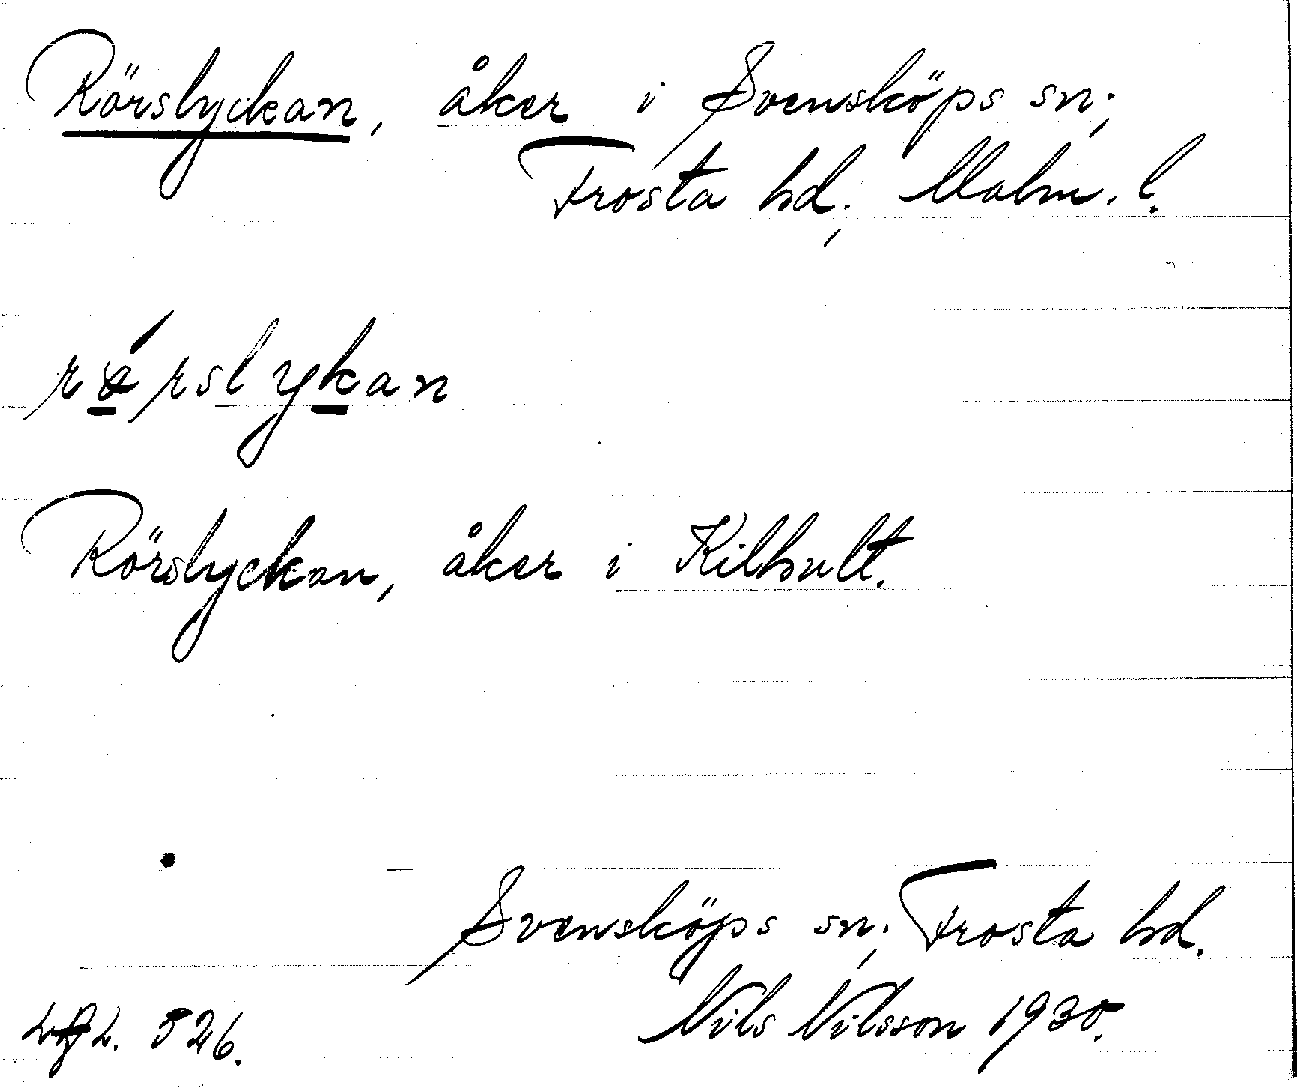 Rörslyckan, åker i Svensköps sn;
Frosta hd; Malm. l.
rǿrslykan
Rörslyckan, åker i Kilhult.
Svensköps sn; Frosta hd.
Nils Nilsson 1930.
526.